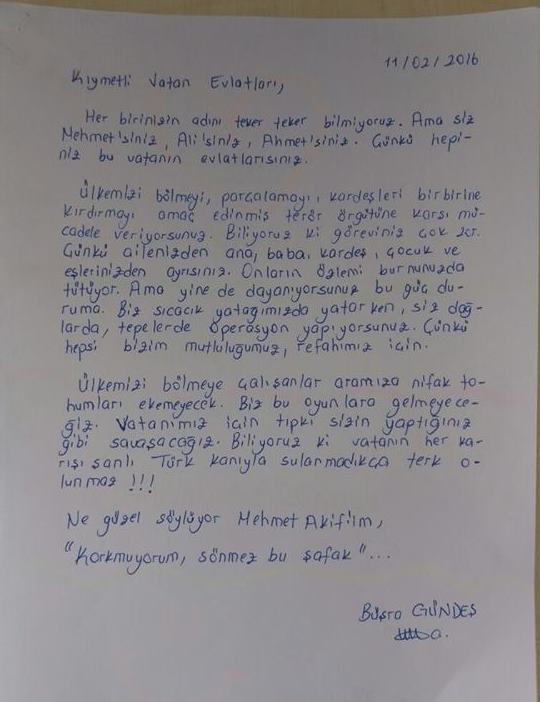 11/02/2016
Kıymetli Vatan Evlatları,
Her birinizin adını teker teker bilmiyoruz. Ama siz
Mehmet'siniz, Ali'siniz, Ahmet'siniz. Çünkü hepi-
niz bu vatanın evlatlarısınız.
Ülkemizi bölmeyi, parçalamayı, kardeşleri birbirine
kırdırmayı amaç edinmiş terör örgütüne karşı mü-
cadele veriyorsunuz. Biliyoruz ki göreviniz çok zor.
Çünkü ailenizden ana, baba, kardeş, çocuk ve
eşlerinizden ayrısınız. Onların özlemi burnunuzda
tütüyor. Ama yine de dayanıyorsunuz bu güç du-
ruma. Biz sıcacık yatağımızda yatarken, siz dağ-
larda, tepelerde operasyon yapıyorsunuz. Çünkü
hepsi bizim mutluluğumuz, refahımız için.
Ülkemizi bölmeye çalışanlar aramıza nifak to-
humları ekemeyecek. Biz bu oyunlara gelmeyece-
ğiz. Vatanımız için tıpkı sizin yaptığınız
gibi savaşacağız. Biliyoruz ki vatanın her ka-
rışı şanlı Türk kanıyla sulanmadıkça terk o-
lunmaz !!!
Ne güzel söylüyor Mehmet Akif'im,
"Korkmuyorum, sönmez bu şafak"...
Büşra GÜNDEŞ